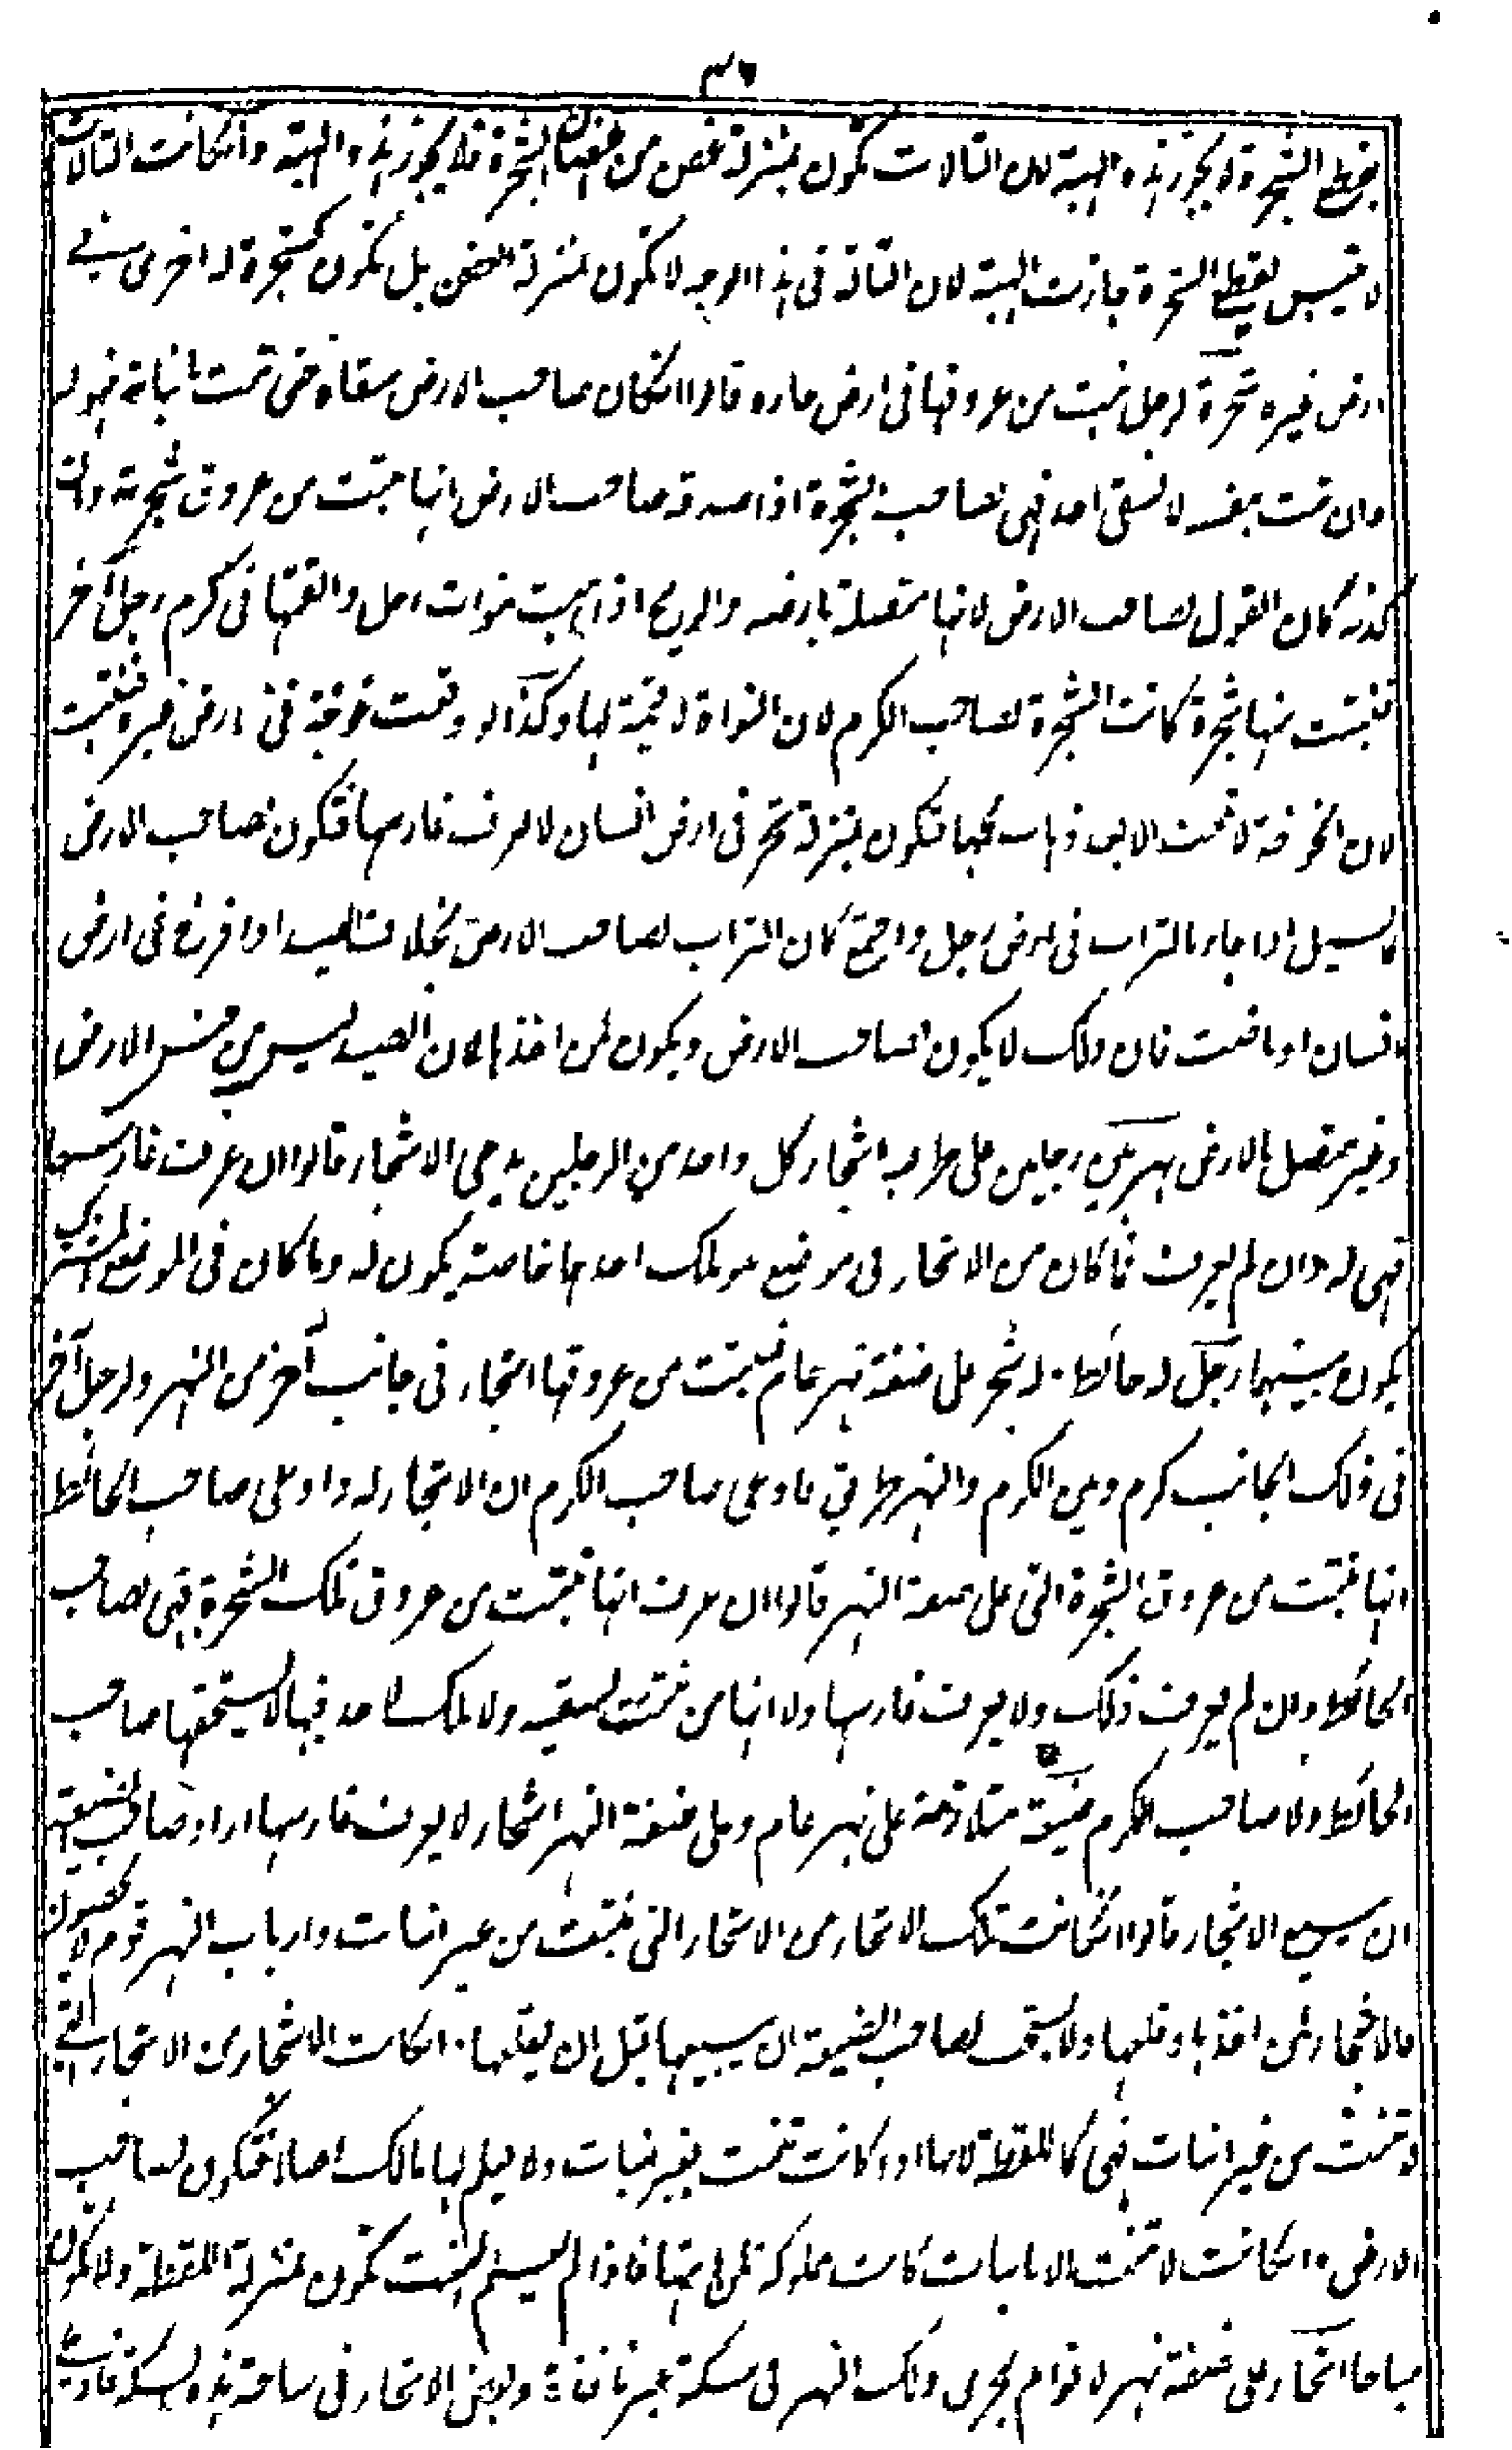 ٣٦
بقطع الشجرة لا يجوز هذه الهبة لان التالات تكون بمنزلة غصن من اغصان الشجرة فلا يجوز هذه الهبة وانكانت التالات
لا تيبس بقطع الشجرة جازت الهبة لان التالة فى هذا الوجه لا تكون بمنزلة الغصن بل تكون كشجرة له اخرى فى
ارض غيره شجرة لرجل نبتت من عروقها فى ارض جاره قالوا انكان صاحب الارض سقاه حتى نمت بانباته فهو له
وان نمت بنفسه لا بسقى احد فهى لصاحب الشجرة اذا صدقه صاحب الارض انها نبتت من عروق شجرته وان
كذبه كان القول لصاحب الارض لانها متصلة بارضه والريح اذا هبت بنوات رجل والقتها فى كرم رجل آخر
فنبتت منها شجرة كانت الشجرة لصاحب الكرم لان النواة لا قيمة لها وكذا لو وقعت خوخة فى ارض غيره فنبتت
لان الخوخة لا تنبت الا بعد ذهاب لحمها فتكون بمنزلة شجر فى ارض انسان لا يعرف غارسها فتكون لصاحب الارض
كالسيل اذا جاء بالتراب فى ارض رجل واجتمع كان التراب لصاحب الارض بخلاف الصيد اذا فرخ فى ارض
انسان او باضت فان ذلك لا يكون لصاحب الارض ويكون لمن اخذها لان الصيد ليس من جنس الارض
وغير متصل بالارض نهر بين رجلين على طرفيه اشجار كل واحد من الرجلين يدعى الاشجار قالوا ان عرف غارسها
فهى له وان لم يعرف فما كان من الاشجار فى موضع هو ملك احدهما خاصة يكون له وما كان فى الموضع المشترك
يكون بينهما رجل له حائط له شجر على ضفة نهر عام فنبتت من عروقها اشجار فى جانب آخر من النهر ولرجل آخر
فى ذلك الجانب كرم وبين الكرم والنهر طريق فادعى صاحب الكرم ان الاشجار له وادعى صاحب الحائط
انها نبتت من عروق الشجرة التى على ضفة النهر قالوا ان عرف انها نبتت من عروق تلك الشجرة فهى لصاحب
الحائط وان لم يعرف ذلك ولا يعرف غارسها ولا انها من نبتت بسقيه ولا ملك لاحد فيها لا يستحقها صاحب
الحائط ولا صاحب الكرم ضيعة متلازقة على نهر عام وعلى ضفة النهر اشجار لا يعرف غارسها اراد صاحب الضيعة
ان يبيع الاشجار قالوا انكانت تلك الاشجار من الاشجار التى نبتت من غير انبات وارباب النهر قوم لا يحصون
فالاشجار لمن اخذها وقلعها ولا يستحق لصاحب الضيعة ان يبيعها قبل ان يقلعها وانكانت الاشجار من الاشجار التى
لا تنبت من غير انبات فهى كاللقطة لانها اذا كانت تنبت بغير نبات ولا يعلم لها مالك اصلا فتكون لصاحب
الارض وانكانت لا تنبت الا بانبات كانت مملوكة لمن انبتها فاذا لم يعلم المنبت تكون بمنزلة اللقطة ولا تكون
مباحا اشجار على ضفة نهر لاقوام يجرى ذلك النهر فى سكة غير نافذة وبعض الاشجار فى ساحة هذه السكة فادعى